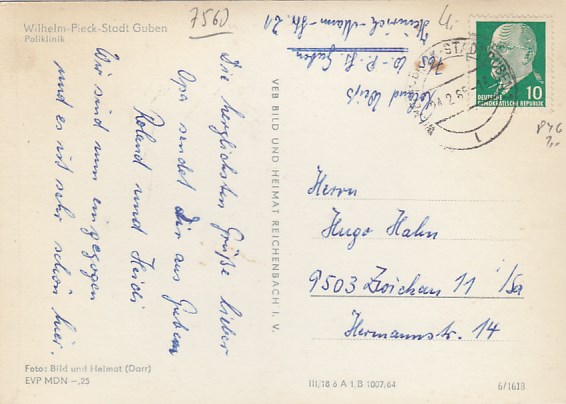 Wilhelm-Pieck-Stadt Guben
Poliklinik
7560
Die herzlichsten Grüße lieber
Opa sendet Dir aus Guben
Roland und Heidi
Wir sind nun eingezogen
und es ist sehr schön hier.
Foto: Bild und Heimat (Darr)
EVP MDN –,25
VEB BILD UND HEIMAT REICHENBACH I. V.
Roland Weiß
W.-P.-St. Guben
Heinrich-Mann-Str. 21
DEUTSCHE
DEMOKRATISCHE REPUBLIK
10
Herrn
Hugo Hahn
9503 Zwickau 11 /Sa
Hermannstr. 14
III/18 6 A 1 B 1007/64
6/1618